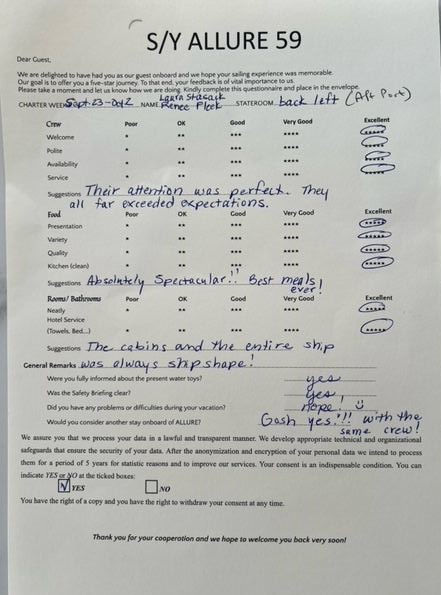 S/Y ALLURE 59
Dear Guest,
We are delighted to have had you as our guest onboard and we hope your sailing experience was memorable.
Our goal is to offer you a five-star journey. To that end, your feedback is of vital importance to us.
Please take a moment and let us know how we are doing. Kindly complete this questionnaire and place in the envelope.
CHARTER WEEK Sept. 23-Oct 2 NAME Laura Stasack Renee Fleck STATEROOM back left (Aft Port)
Crew Poor OK Good Very Good Excellent
Welcome * ** *** **** *****
Polite * ** *** **** *****
Availability * ** *** **** *****
Service * ** *** **** *****
Suggestions Their attention was perfect. They
all far exceeded expectations.
Food Poor OK Good Very Good Excellent
Presentation * ** *** **** *****
Variety * ** *** **** *****
Quality * ** *** **** *****
Kitchen (clean) * ** *** **** *****
Suggestions Absolutely Spectacular!! Best meals
ever!
Rooms/ Bathrooms Poor OK Good Very Good Excellent
Neatly * ** *** **** *****
Hotel Service
(Towels, Bed...) * ** *** **** *****
Suggestions The cabins and the entire ship
General Remarks was always shipshape!
Were you fully informed about the present water toys? yes
Was the Safety Briefing clear? yes!
Did you have any problems or difficulties during your vacation? nope!
Would you consider another stay onboard of ALLURE? Gosh yes!!! with the
same crew!
We assure you that we process your data in a lawful and transparent manner. We develop appropriate technical and organizational
safeguards that ensure the security of your data. After the anonymization and encryption of your personal data we intend to process
them for a period of 5 years for statistic reasons and to improve our services. Your consent is an indispensable condition. You can
indicate YES or NO at the ticked boxes:
YES NO
You have the right of a copy and you have the right to withdraw your consent at any time.
Thank you for your cooperation and we hope to welcome you back very soon!